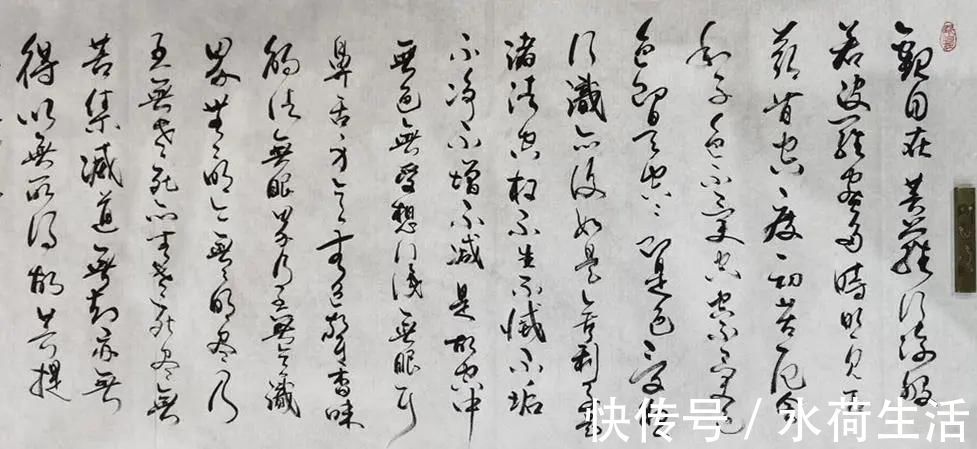 觀自在菩薩行深般
若波羅蜜多時照見五
蘊皆空度一切苦厄舍
利子色不異空空不異色
色即是空空即是色受想
行識亦復如是舍利子是
諸法空相不生不滅不垢
不淨不增不減是故空中
無色無受想行識無眼耳
鼻舌身意無色聲香味
觸法無眼界乃至無意識
界無無明亦無無明盡乃
至無老死亦無老死盡無
苦集滅道無智亦無
得以無所得故菩提
快传号 / 水荷生活